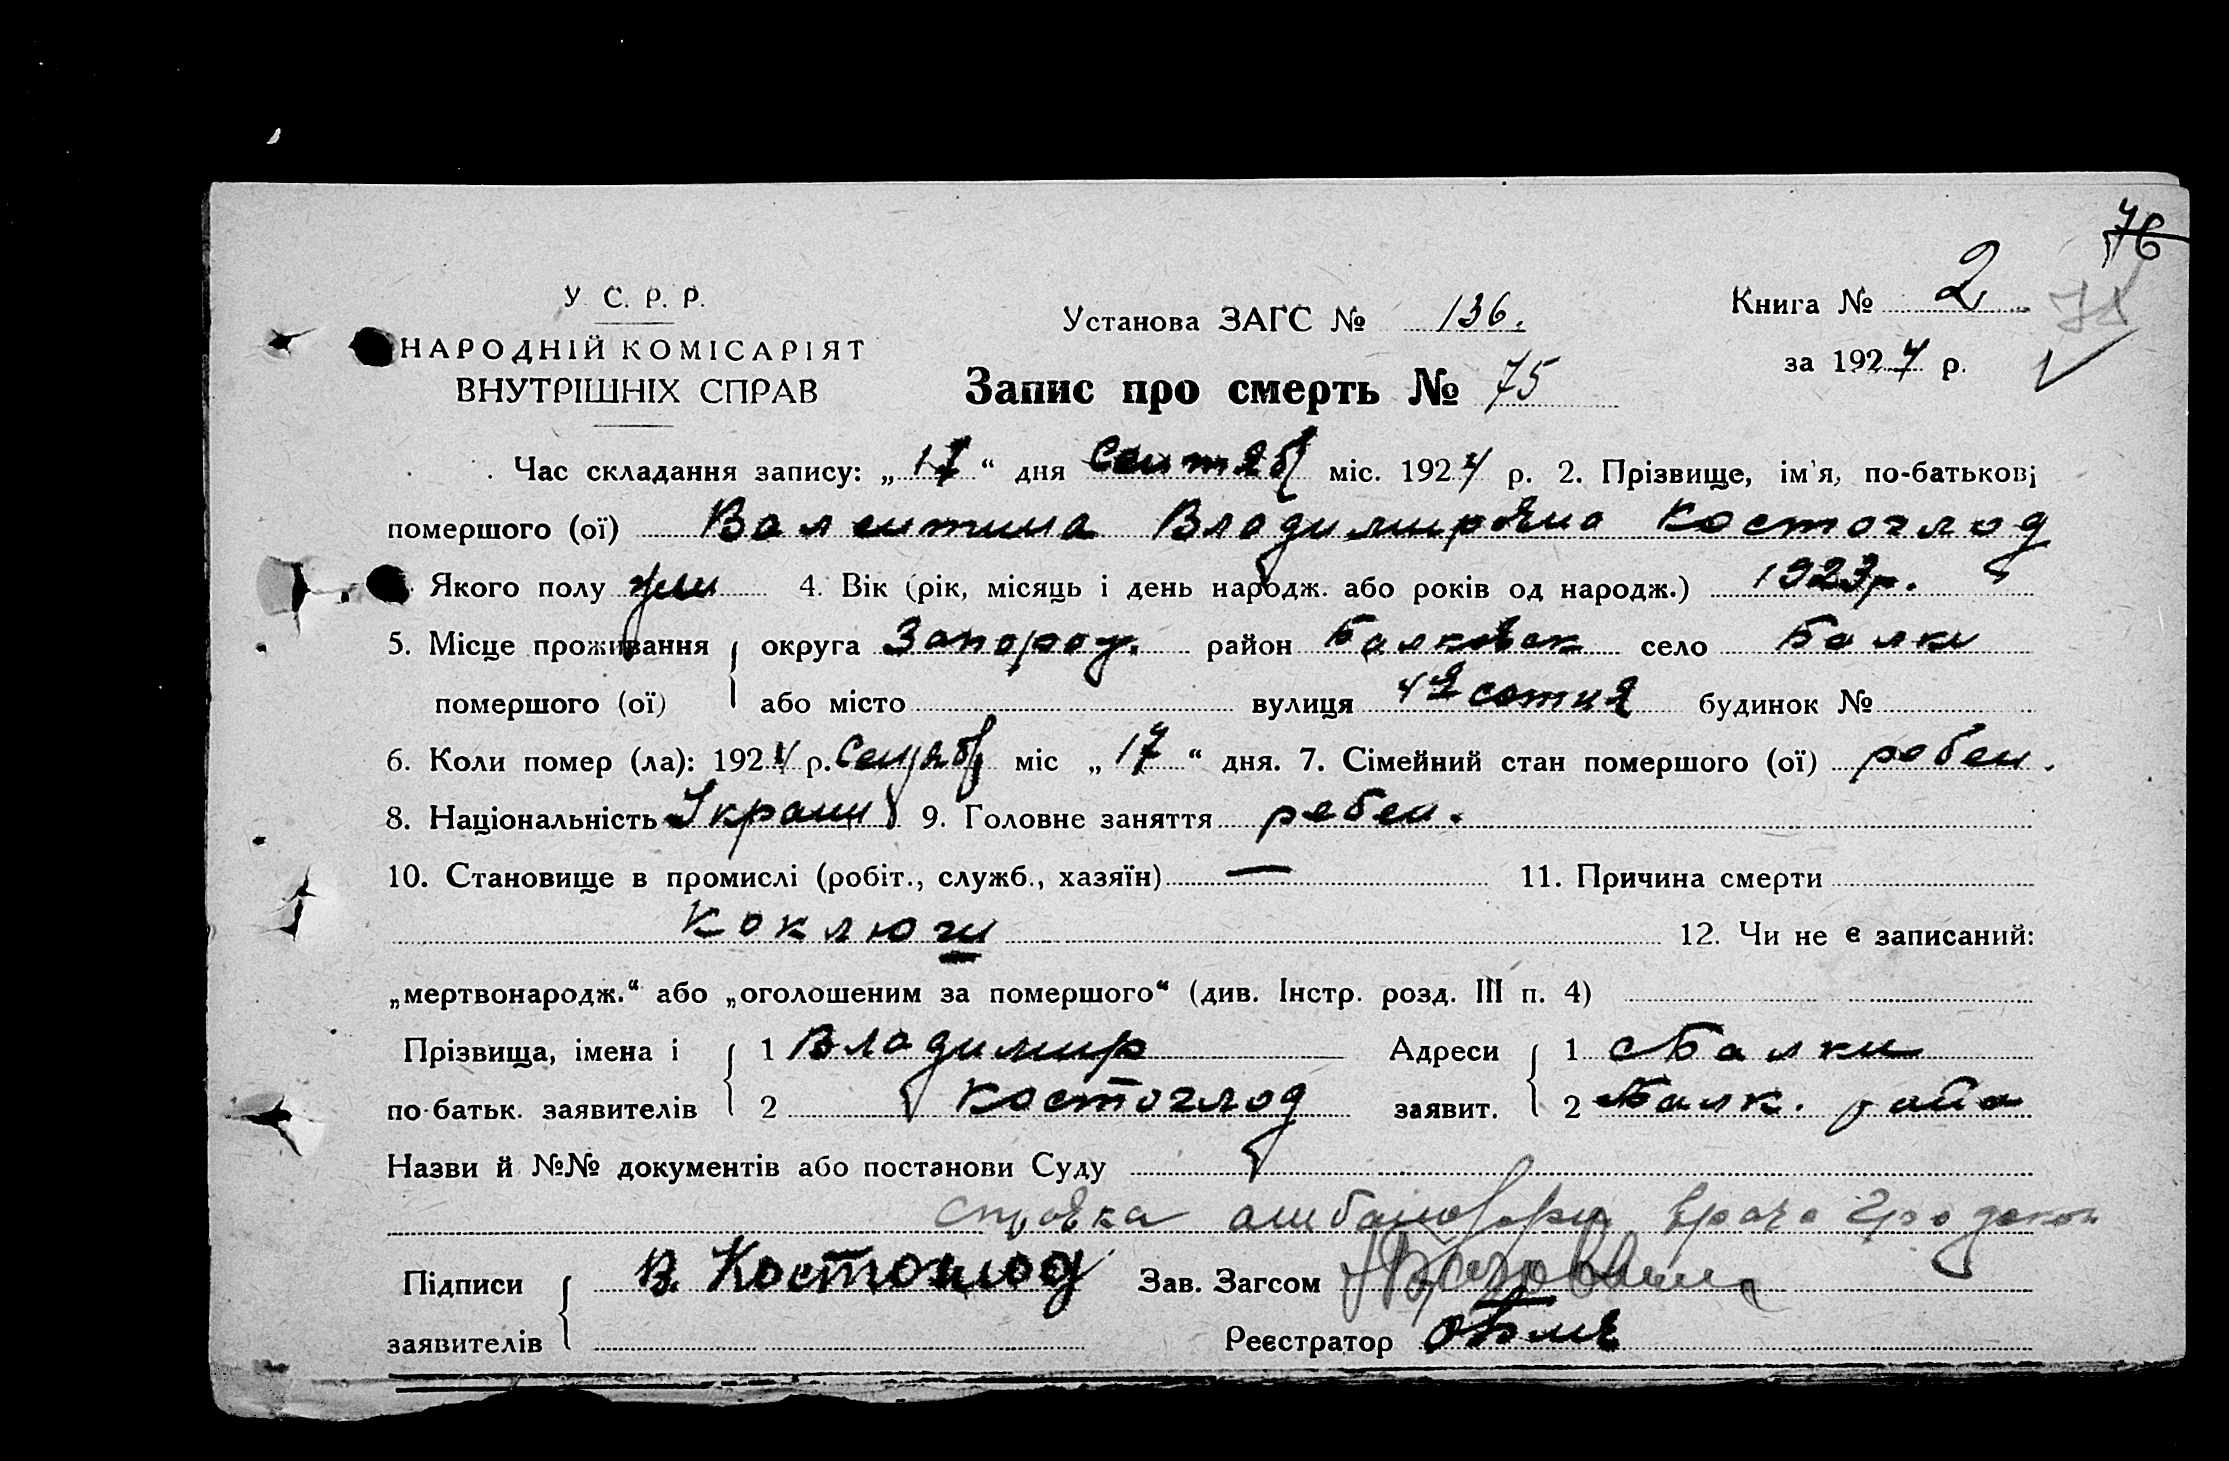 76
У. С. Р. Р.
Установа ЗАГС № 136.
Книга № 2
78
НАРОДНІЙ КОМІСАРІЯТ
за 1924 р.
ВНУТРІШНІХ СПРАВ
Запис про смерть № 75
Час складання запису: „17“ дня Сентяб міс. 1924 р. 2. Прізвище, ім'я, по-батькові
помершого (ої) Валентина Владимировна Костоглод
Якого полу жен 4. Вік (рік, місяць і день народж. або років од народж.) 1923 р.
5. Місце проживання округа Запорож. район Балковск село Балки
помершого (ої) або місто вулиця 4я сотня будинок №
6. Коли помер (ла): 1924 р. Сентяб міс „17“ дня. 7. Сімейний стан помершого (ої) ребен.
8. Національність Украин 9. Головне заняття ребен.
10. Становище в промислі (робіт., служб., хазяїн) — 11. Причина смерти
коклюш 12. Чи не є записаний:
„мертвонародж.“ або „оголошеним за помершого“ (див. Інстр. розд. III п. 4)
Прізвища, імена і 1 Владимир Адреси 1 с Балки
по-батьк. заявителів 2 Костоглод заявит. 2 Балк. райо
Назви й №№ документів або постанови Суду
справка амбулатории врача
Підписи В. Костоглод Зав. Загсом
заявителів Реєстратор